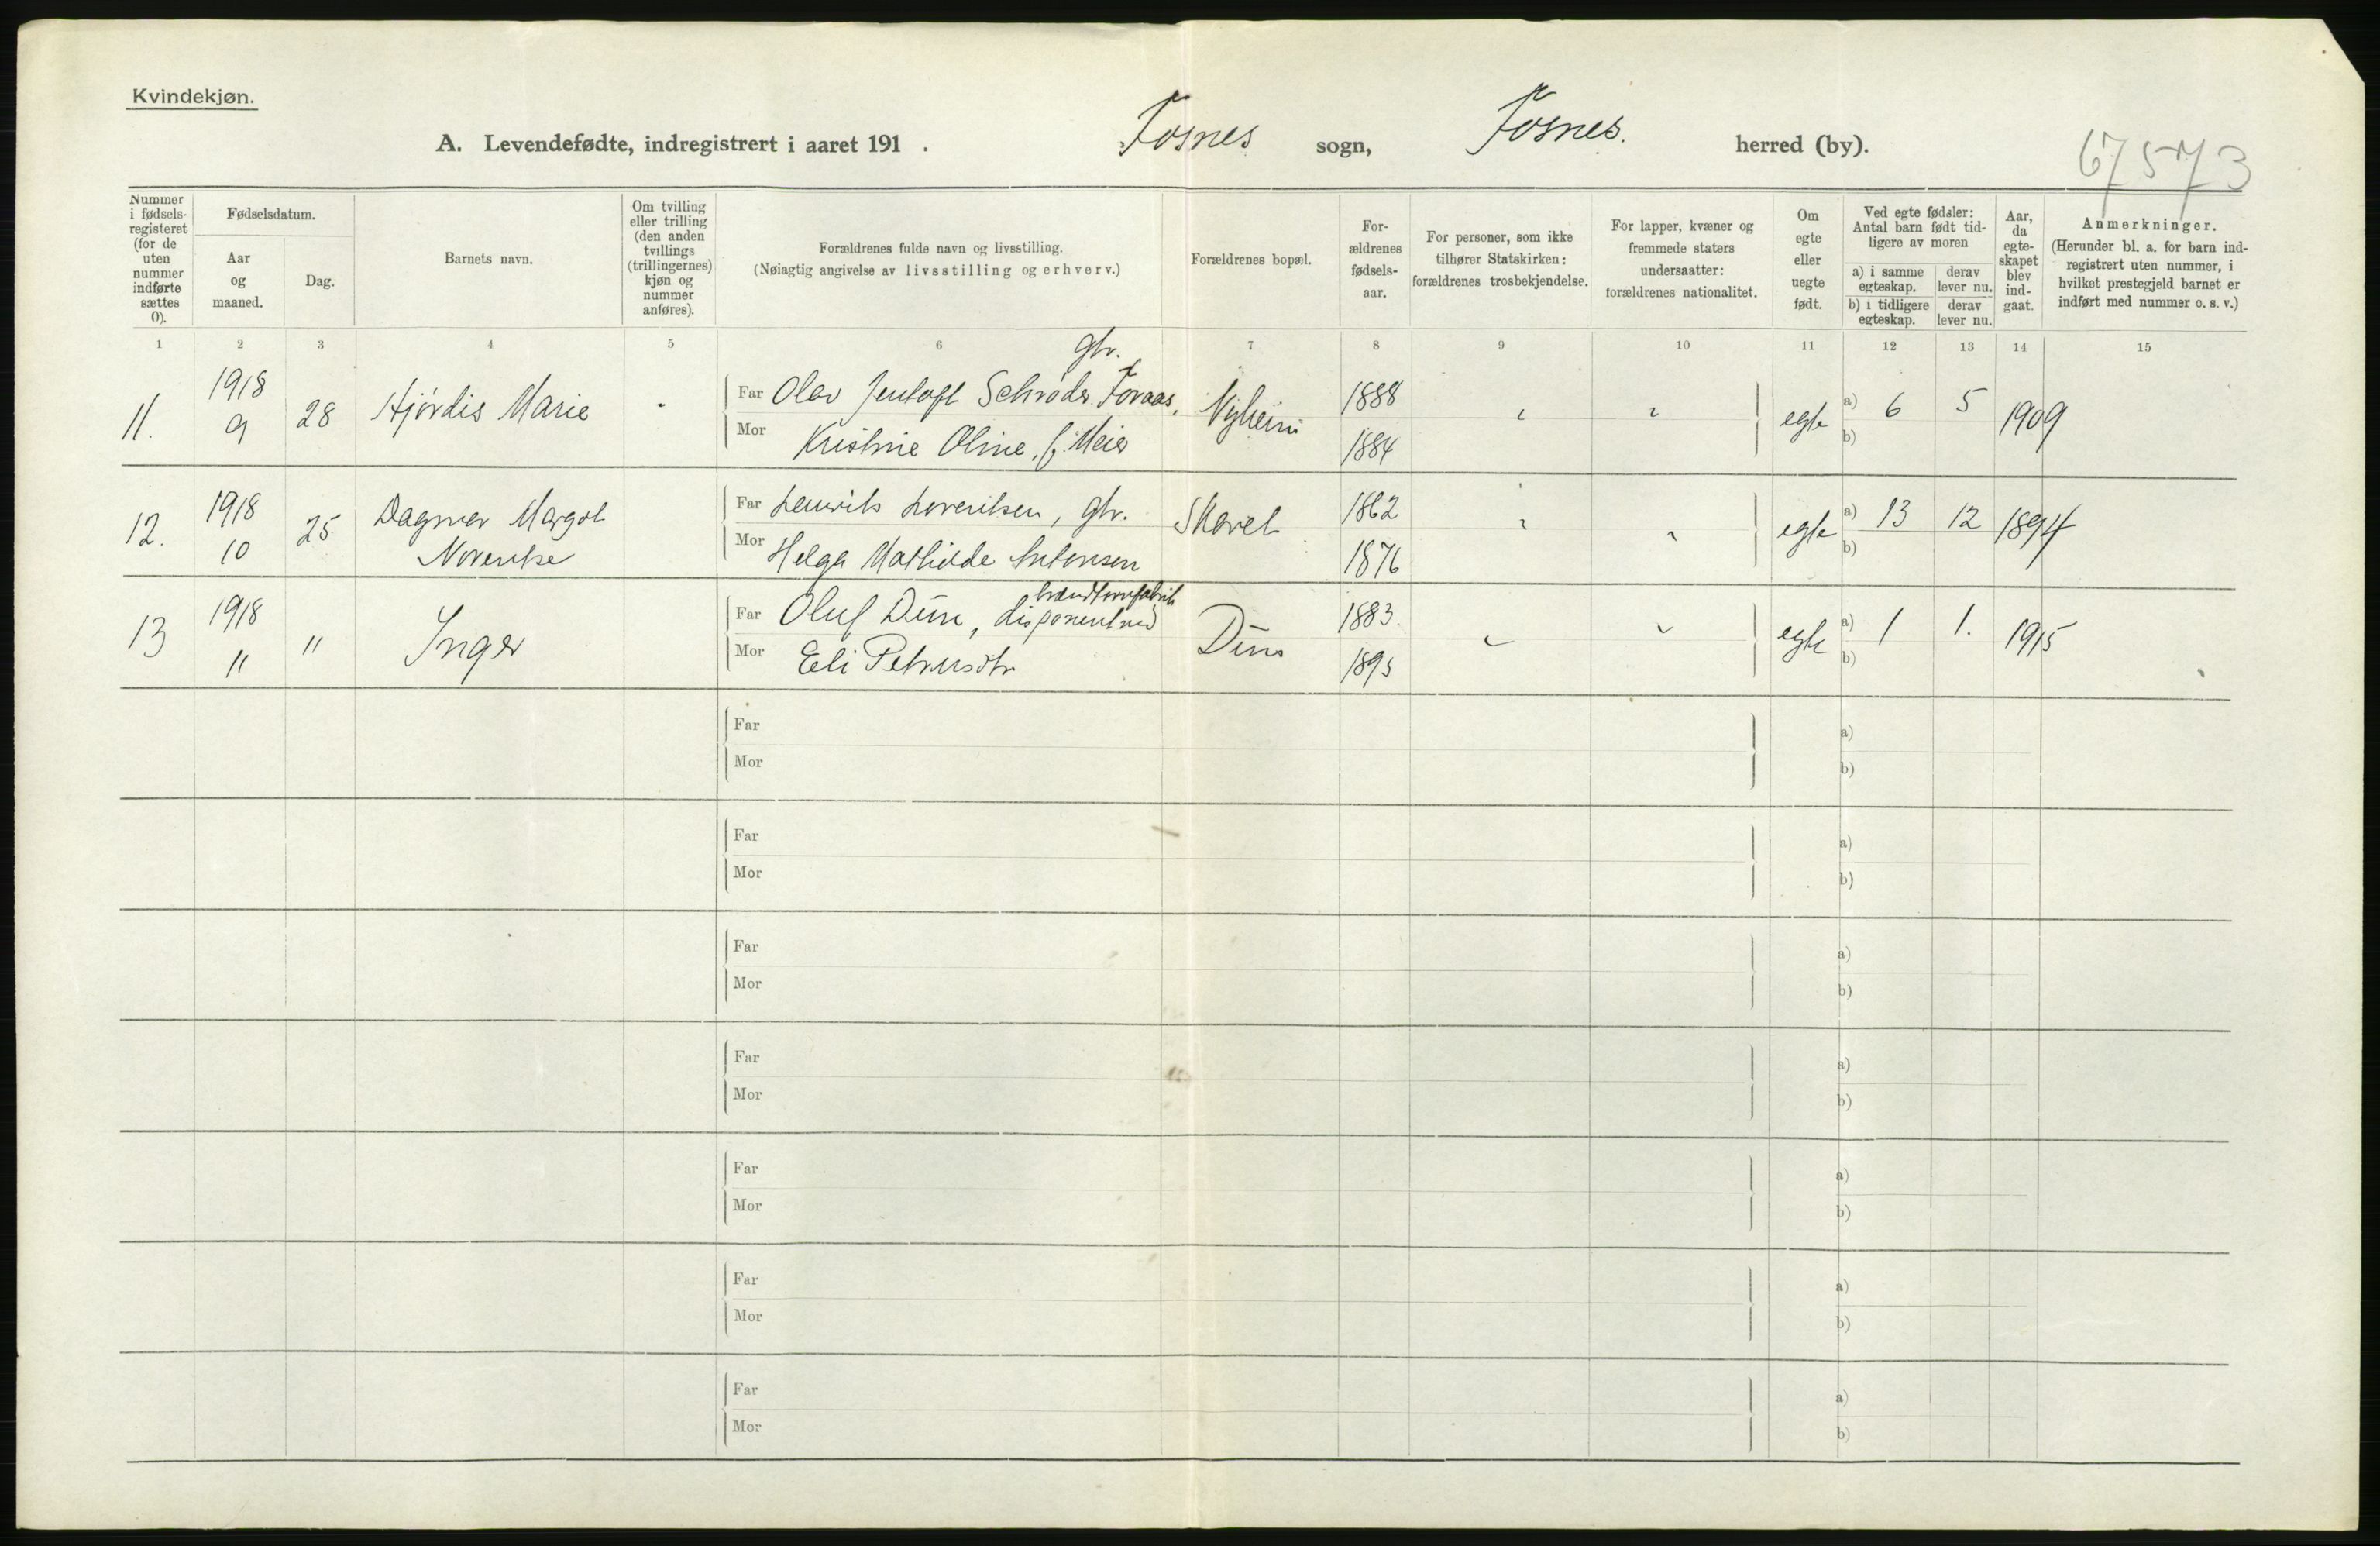 Kvindekjøn.
A. Levendefødte, indregistrert i aaret 191 . Fosnes sogn, Fosnes. herred (by).
67573
Nummer i fødselsregisteret (for de uten nummer indførte sættes 0).
Fødselsdatum.
Aar og maaned.
Dag.
Barnets navn.
Om tvilling eller trilling (den anden tvillings (trillingernes) kjøn og nummer anføres).
Forældrenes fulde navn og livsstilling.
(Nøiagtig angivelse av livsstilling og erhverv.)
Forældrenes bopæl.
Forældrenes fødselsaar.
For personer, som ikke tilhører Statskirken: forældrenes trosbekjendelse.
For lapper, kvæner og fremmede staters undersaatter: forældrenes nationalitet.
Om egte eller uegte født.
Ved egte fødsler: Antal barn født tidligere av moren
a) i samme egteskap.
derav lever nu.
b) i tidligere egteskap.
derav lever nu.
Aar, da egteskapet blev indgaat.
Anmerkninger.
(Herunder bl. a. for barn indregistrert uten nummer, i hvilket prestegjeld barnet er indført med nummer o. s. v.)
1 2 3 4 5 6 7 8 9 10 11 12 13 14 15
11. 1918 9 28 Hjørdis Marie
Far Olav Jentoft Schrøder Foraas, gbr.
Mor Kristine Oline, f. Meier
1888
1884
egte a) 6 5 1909
b)
12. 1918 10 25 Dagmar Margot
Far Laurits Lorentsen, gbr.
Mor Helga Mathilde Antonsen
1862
1876
egte a) 13 12 1894
b)
13 1918 11 " Inger
Far Oluf Dun, disponent ved
Mor Eli Petrusdtr
Dun
1883
1895
egte a) 1 1. 1915
b)
Far a)
Mor b)
Far a)
Mor b)
Far a)
Mor b)
Far a)
Mor b)
Far a)
Mor b)
Far a)
Mor b)
Far a)
Mor b)